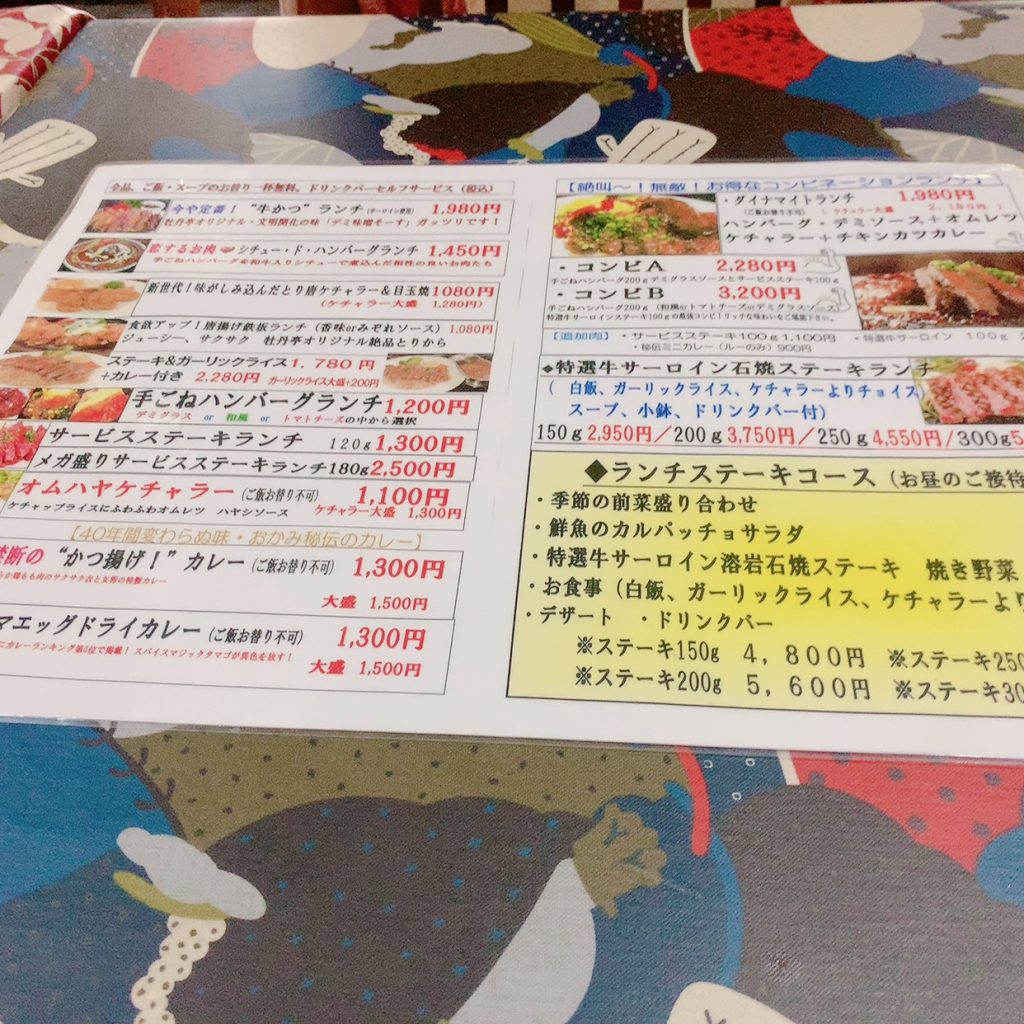 全品、ご飯・スープのお替り一杯無料。ドリンクバーセルフサービス(税込)
今や定番！"牛かつ"ランチ(サーロイン使用) 1,980円
牡丹亭オリジナル・文明開化の味「デミ味噌そーす」ガッツリです！
恋するお肉 シチュー・ド・ハンバーグランチ 1,450円
手ごねハンバーグを和牛入りシチューで煮込んだ相性の良いお肉たち
新世代！味がしみ込んだとり唐ケチャラー＆目玉焼 1080円
(ケチャラー大盛 1,280円)
食欲アップ！唐揚げ鉄板ランチ（香味orみぞれソース）1,080円
ジューシー、サクサク 牡丹亭オリジナル絶品とりから
ステーキ&ガーリックライス 1,780円
+カレー付き 2,280円 ガーリックライス大盛+200円
手ごねハンバーグランチ 1,200円
デミグラス or 和風 or トマトチーズの中から選択
サービスステーキランチ 120g 1,300円
メガ盛りサービスステーキランチ180g 2,500円
オムハヤケチャラー(ご飯お替り不可) 1,100円
ケチャップライスにふわふわオムレツ ハヤシソース ケチャラー大盛 1,300円
【40年間変わらぬ味・おかみ秘伝のカレー】
禁断の "かつ揚げ！"カレー(ご飯お替り不可) 1,300円
もも肉のサクサク衣と女将の特製カレー
大盛 1,500円
マエッグドライカレー(ご飯お替り不可) 1,300円
にカレーランキング第4位で掲載！スパイスマジックタマゴが異色を放す！
大盛 1,500円
【絶叫～！無敵！お得なコンビネーションランチ】
・ダイナマイトランチ 1,980円
(ご飯お替り不可) (ケチャラー大盛 2,180円)
ハンバーグ・デミソース＋オムレツ
ケチャラー＋チキンカツカレー
・コンビA 2,280円
手ごねハンバーグ200gデミグラスソースとサービスステーキ100g
・コンビB 3,200円
手ごねハンバーグ200g（和風orトマトチーズorデミグラスソース）
特選牛サーロインステーキ100gの最強コンビ！リッチな味わいをご堪能下さい。
【追加肉】・サービスステーキ100g1,100円 ・特選牛サーロイン 100g
・秘伝ミニカレー（ルーのみ）900円
◆特選牛サーロイン石焼ステーキランチ
（ 白飯、ガーリックライス、ケチャラーよりチョイス
スープ、小鉢、ドリンクバー付）
150g 2,950円／200g 3,750円／250g 4,550円/300g5
◆ランチステーキコース（お昼のご接待
・季節の前菜盛り合わせ
・鮮魚のカルパッチョサラダ
・特選牛サーロイン溶岩石焼ステーキ 焼き野菜
・お食事（白飯、ガーリックライス、ケチャラーより
・デザート ・ドリンクバー
※ステーキ150g 4,800円 ※ステーキ250
※ステーキ200g 5,600円 ※ステーキ30